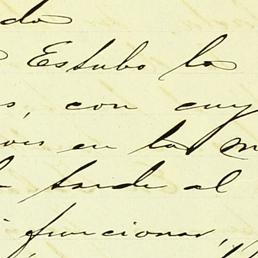 do
Estubo la
s, con cuy
en las m
tarde al
funcionar,